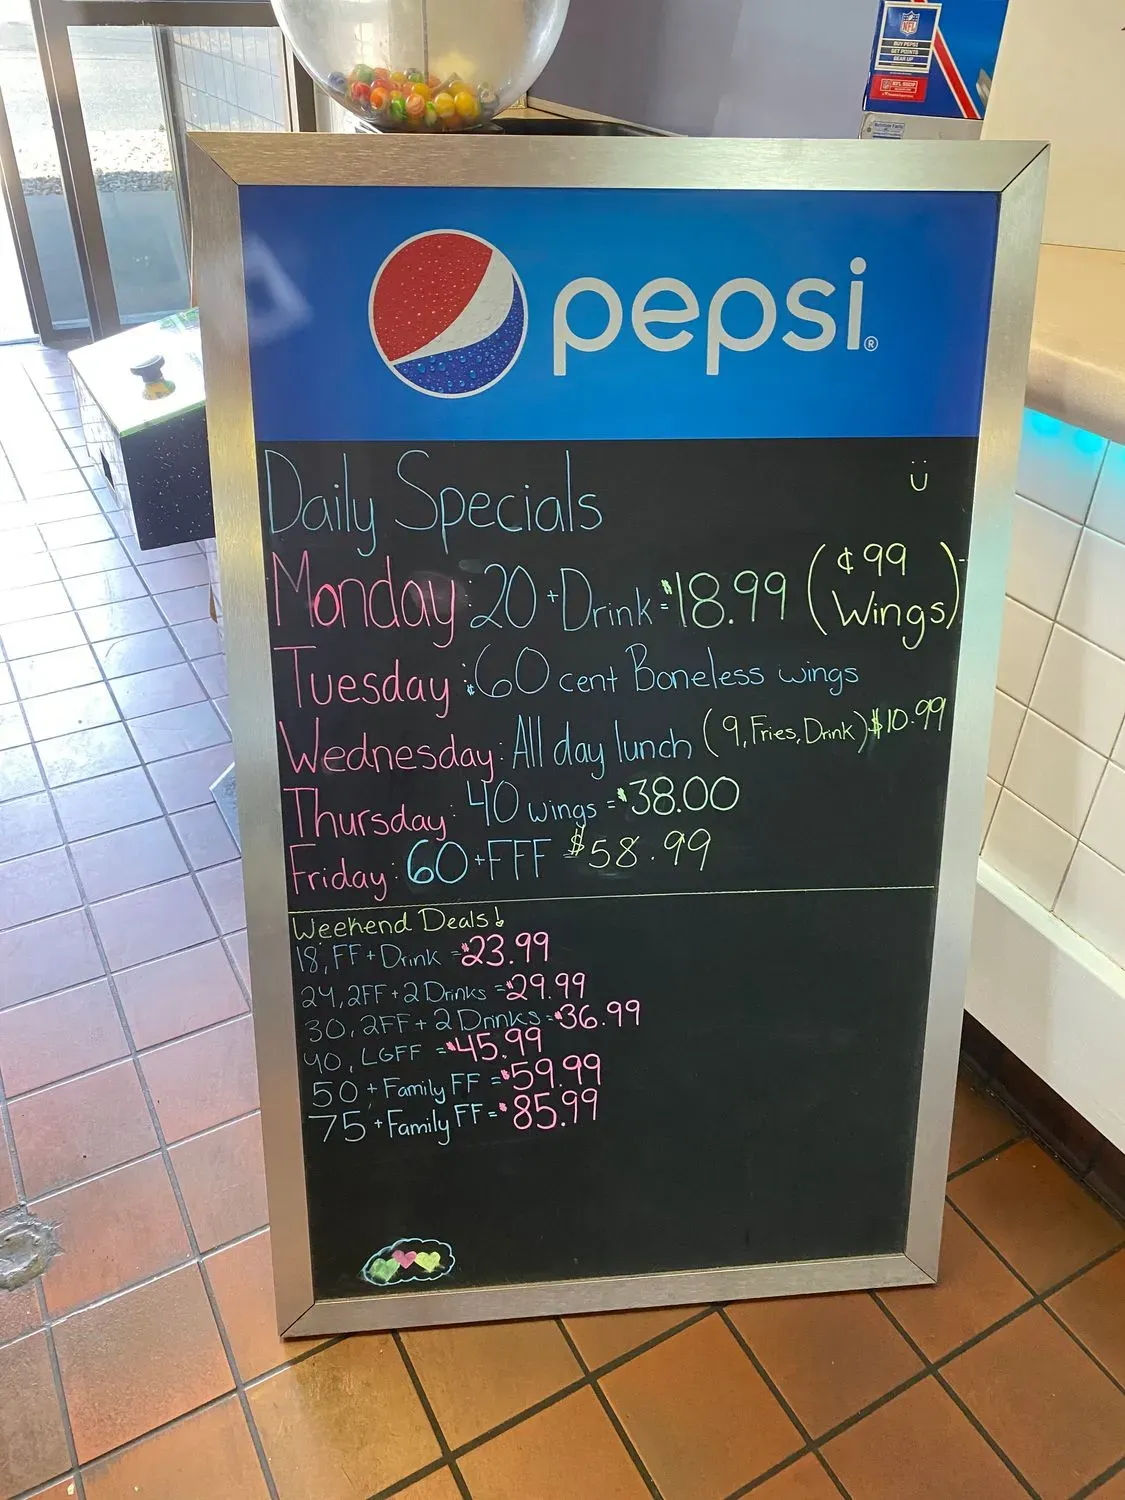 NFL
BUY PEPSI
GET POINTS
GEAR UP
pepsi®
Daily Specials
Monday: 20 + Drink = $18.99 (¢99 Wings)
Tuesday: ¢60 cent Boneless wings
Wednesday: All day lunch (9, Fries, Drink) $10.99
Thursday: 40 wings = $38.00
Friday: 60 + FFF = $58.99
Weekend Deals!
18, FF + Drink = $23.99
24, 2FF + 2 Drinks = $29.99
30, 2FF + 2 Drinks = $36.99
40, LGFF = $45.99
50 + Family FF = $59.99
75 + Family FF = $85.99